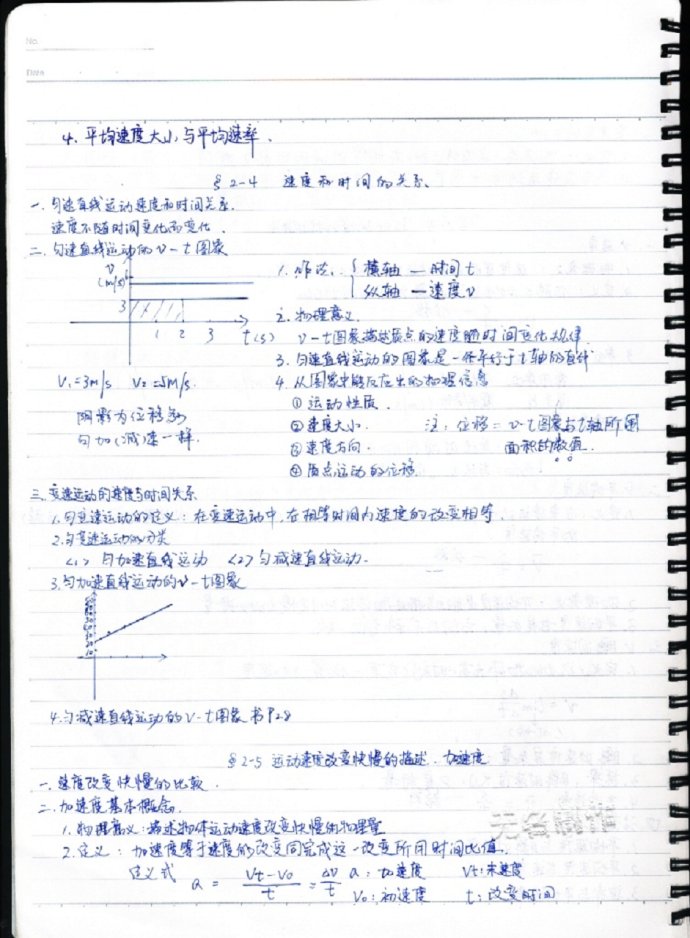 No.
Date
4. 平均速度大小与平均速率.
§2-4 速度和时间的关系.
一. 匀速直线运动速度和时间关系.
速度不随时间变化而变化.
二. 匀速直线运动的v-t图象
v
(m/s)
3
1 2 3 t(s)
V₁=3m/s V₂=5m/s.
阴影为位移
匀加(减)速一样.
1. 作法: { 横轴—时间t
纵轴—速度v
2. 物理意义.
v-t图象描述质点的速度随时间变化规律.
3. 匀速直线运动的图象是一条平行于t轴的直线
4. 从图象中能反应出的物理信息
① 运动性质.
② 速度大小.
③ 速度方向.
④ 质点运动的位移.
注: 位移=v-t图象与t轴所围
面积的数值.
三. 变速运动的速度与时间关系
1. 匀变速运动的定义: 在变速运动中, 在相等时间内速度的改变相等.
2. 匀变速运动的分类
<1> 匀加速直线运动 <2> 匀减速直线运动.
3. 匀加速直线运动的v-t图象
4. 匀减速直线运动的v-t图象 书P28
§2-5 运动速度改变快慢的描述. 加速度
一. 速度改变快慢的比较.
二. 加速度基本概念.
1. 物理意义: 描述物体运动速度改变快慢的物理量
2. 定义: 加速度等于速度的改变同完成这一改变所用时间比值.
定义式 a = (Vt-V₀)/t = ΔV/t a: 加速度 Vt: 末速度
V₀: 初速度 t: 改变时间